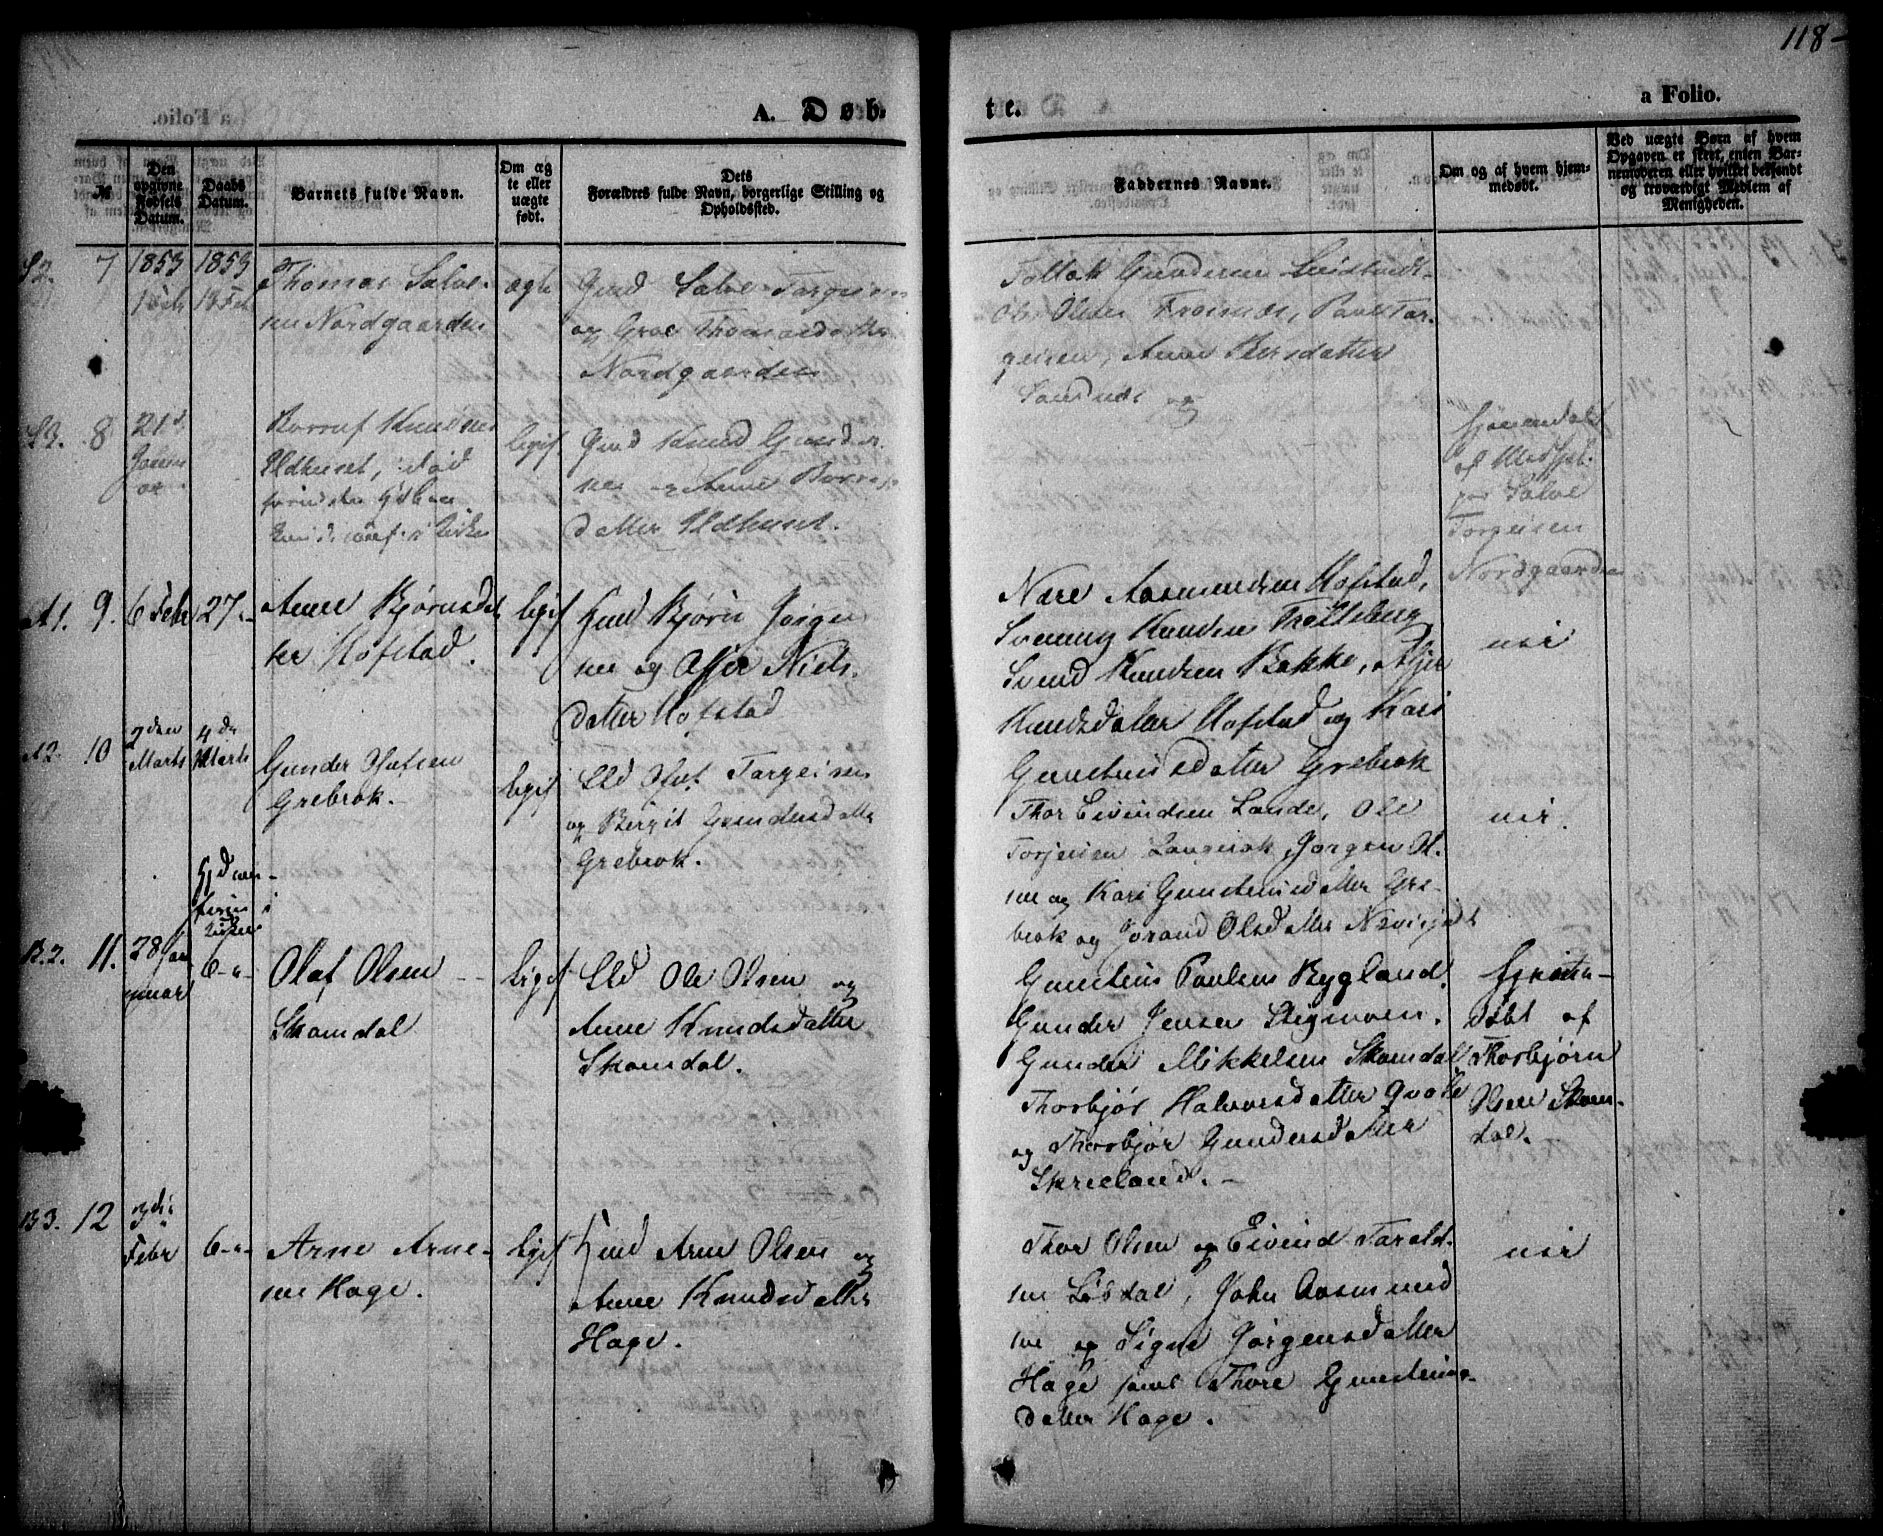 118
A. Døb-
te.
a Folio.
№
Den opgivne Fødsels Datum.
Daabs Datum.
Barnets fulde Navn.
Om ægte eller uægte født.
Dets Forældres fulde Navn, borgerlige Stilling og Opholdssted.
Faddernes Navne.
Om og af hvem hjemmedøbt.
Ved uægte Børn af hvem Opgaven er skeet, enten Barnemoderen eller hvilket bekjendt og troværdigt Medlem af Menigheden.
S2. 7
1853
1 Feb
1853
13 Feb
Thomas Salve-
sen Nordgaarden
ægte
Gmd Salve Targeisen
og Groe Thomasdatter
Nordgaarden
Folkak Gundersen
Ole Olsen Frøisnæs, Paul Tar-
geisen, Anne
Sandnæs og
S3. 8
21d
Januar
Knudsen
Ildhuset, død
Kirke
liges
Gmd Knud Gunder
sen og Anne
datter Ildhuset.
hjemmedøbt
af Medhjel-
per Salve
Torgeisen
Nordgaarden
A1. 9.
6 Feb
27
Anne Bjørnsdat
ter Hofstad.
liges
Hmd Bjørn Jørgen
sen og Asjer Niels
datter Hofstad
Nære Aasmundsen Hofstad,
Svenung Knudsen
Svend Knudsen Bakke,
Knudsdatter Hofstad og Kari
Gunsteinsdatter Grebrok
nei
A2. 10
2den
Marts
4de
Marts
Gunder Olufsen
Grebrok.
ligis
Lld Oluf Targeisen
og Bergit Gundersdatter
Grebrok.
Thor Eivindsen Lande, Ole
Torjeisen Langerak, Jørgen Ol-
sen og Kari Gunsteinsdatter Gre-
brok og Jorand Olsdatter
nei.
B.2. 11.
28 Jan
nuar
Kirken
6
Olaf Olsen
Skomdal
ligis
Lld Ole Olsen og
Anne Knudsdatter
Skomdal.
Gunstein Paulsen Bygland.
Gunder Jensen Stegmoen.
Gunder Mikkelsen Skomdal
Thorbjør Halvorsdatter Qvale
og Thorbjør Gundersdatter
Skreeland.
hjemme-
døbt af
Thorbjørn
Olsen Skom-
dal.
B3. 12
3die
Febr
6
Arne Arne-
sen Hage.
ligis
Hmd Arne Olsen og
Anne Knudsdatter
Hage.
Thor Olsen og Eivind Tarald-
sen Løsdal, John Aasmund
sen og Signe Jørgensdatter
Hage samt Thore Gunsteins-
datter Hage.
nei